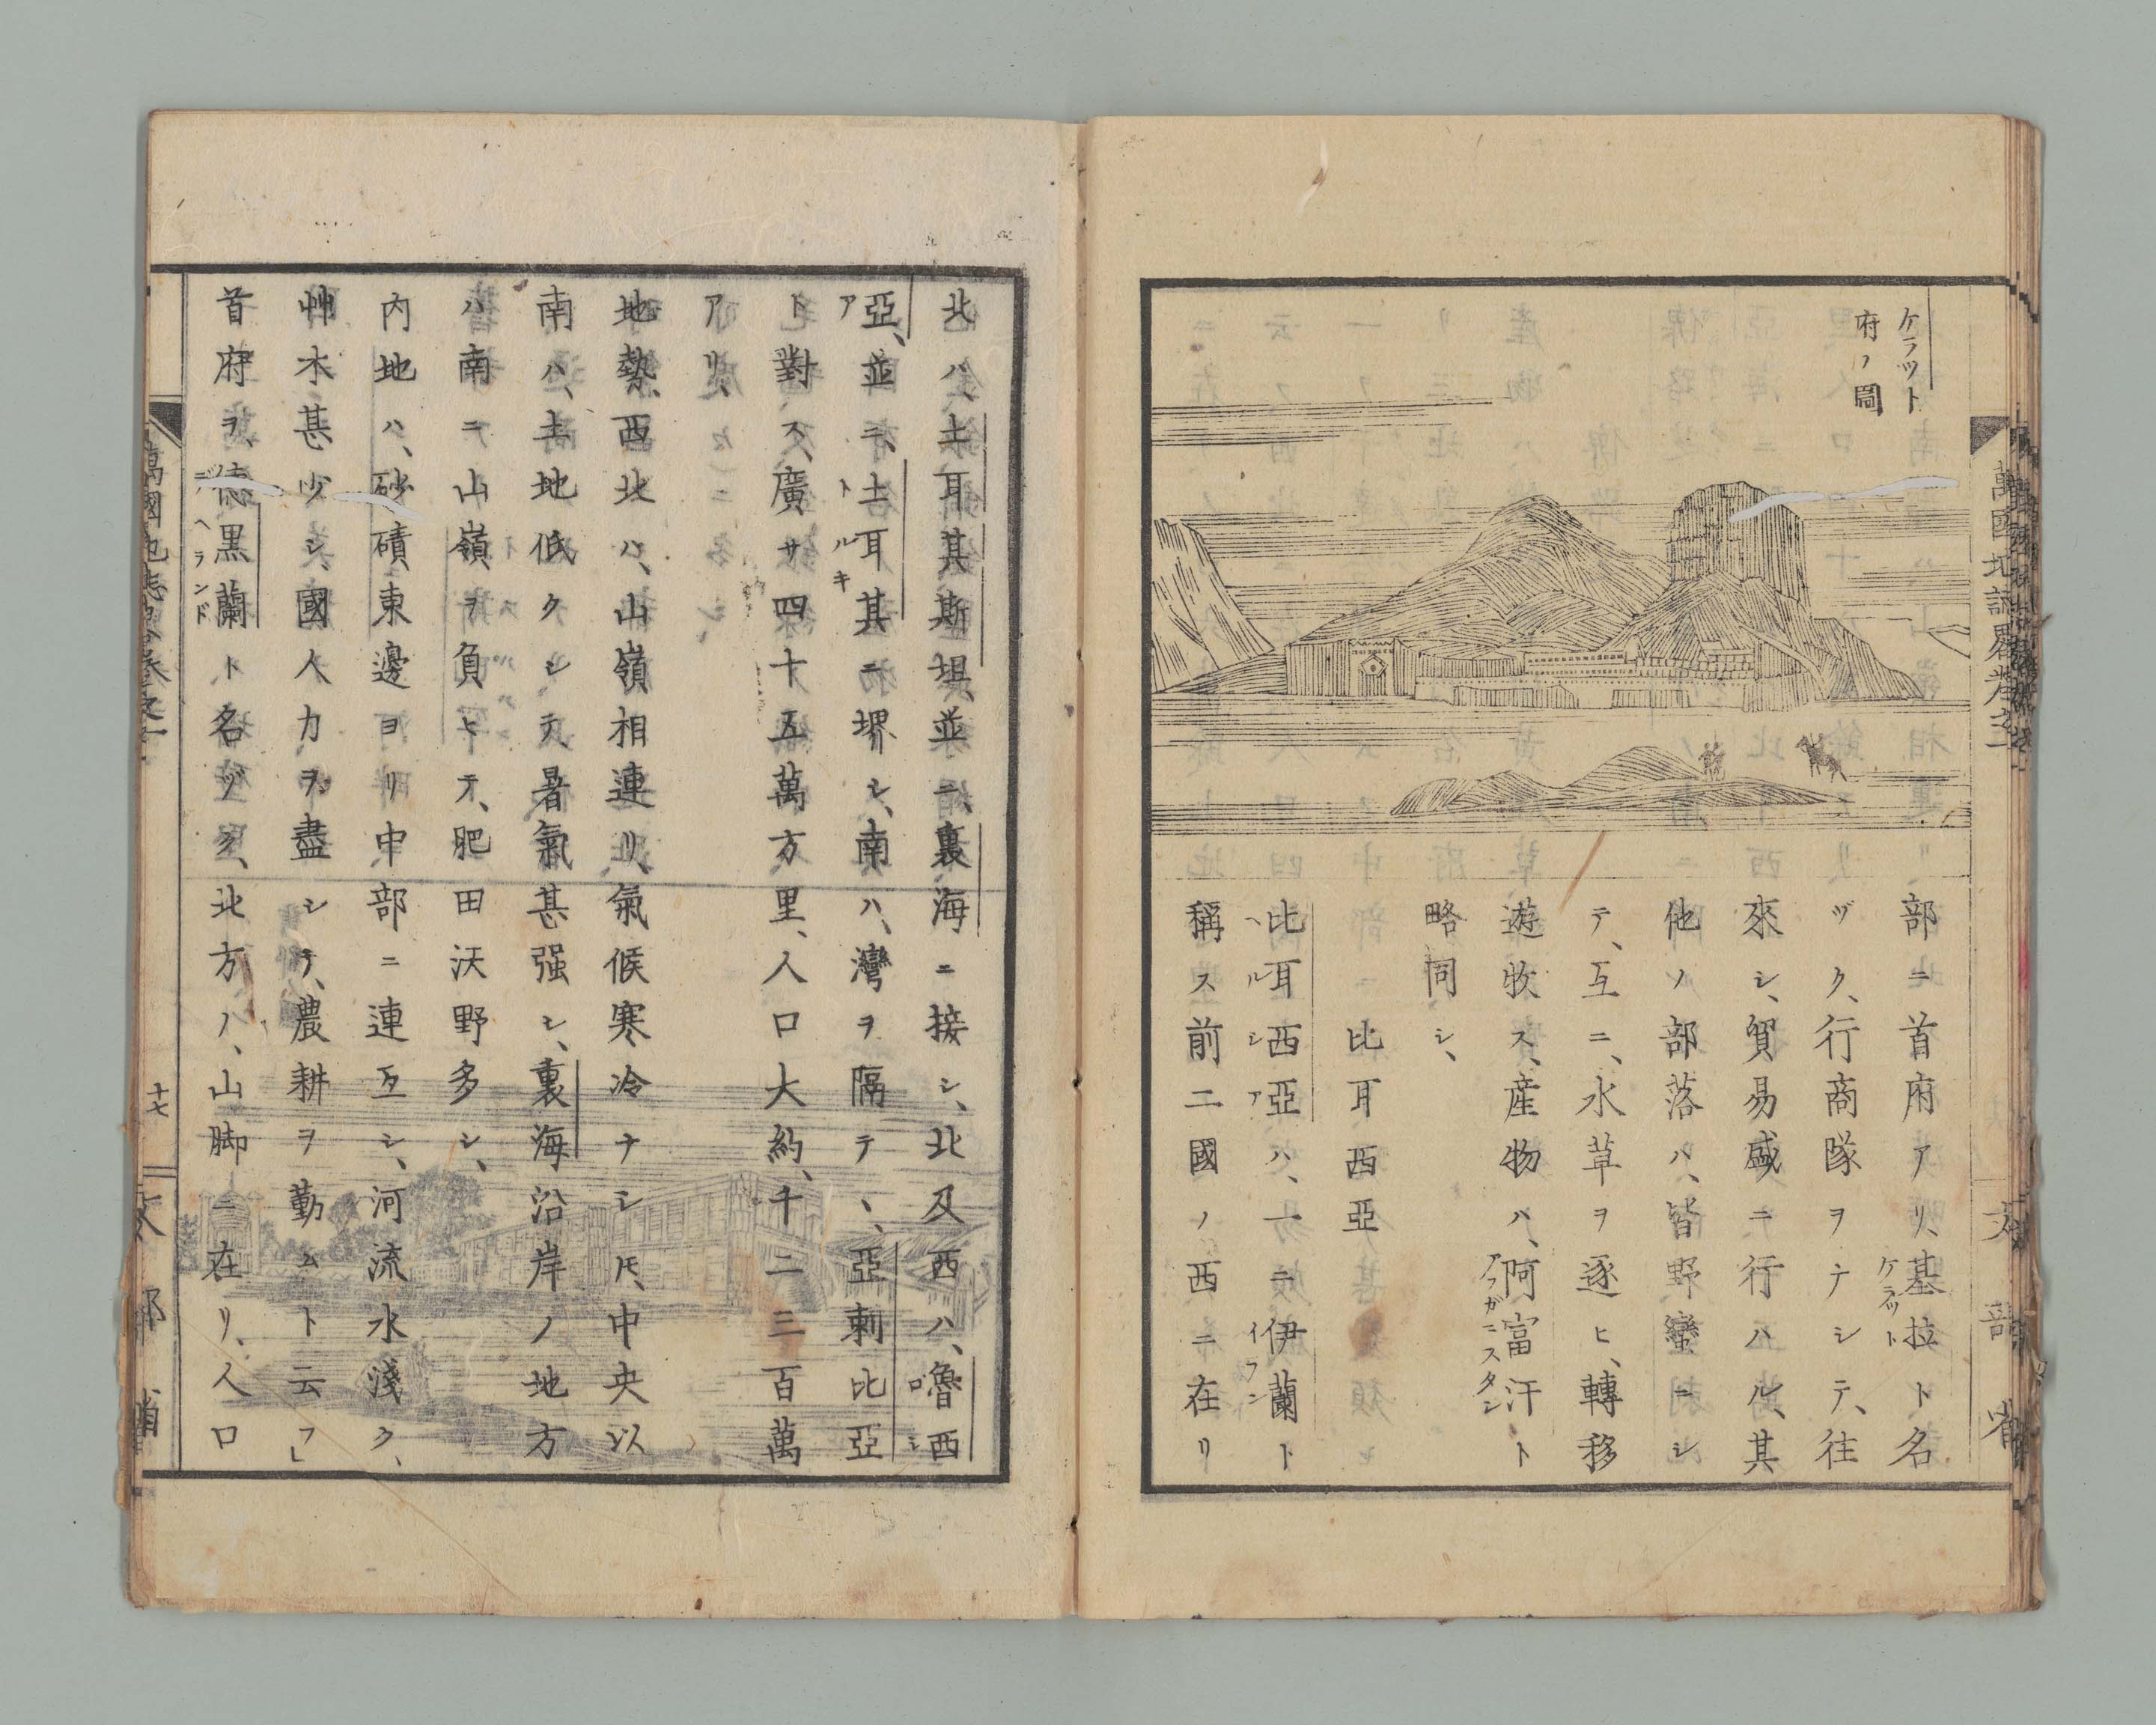 ケラット
府ノ圖
部ニ首府アリ、基拉ト名
ケラット
ヅク、行商隊ヲナシテ、往
來シ、貿易盛ニ行ハル、其
他ノ部落ハ、皆野蠻ニシ
テ、互ニ、水草ヲ逐ヒ、轉移
遊牧ス、産物ハ、阿富汗ト
アフガニスタン
略同シ、
比耳西亞
比耳西亞ハ、一ニ伊蘭ト
ヘルシア イラン
稱ス前二國ノ西ニ在リ
萬國地誌略卷之二
文部省
北ハ、土耳其斯坦、並ニ、裏海ニ接シ、北及西ハ、魯西
ロシ
亞、並ニ、土耳其ニ堺シ、南ハ、灣ヲ隔テヽ、亞剌比亞
ア トルキ
ト對ス、廣サ四十五萬方里、人口大約、千二三百萬
アリ、
地勢、西北ハ、山嶺相連リ、氣候寒冷ナシ𪜈、中央以
南ハ、土地低クシテ、暑氣甚强シ、裏海沿岸ノ地方
ハ、南ニ山嶺ヲ負ヒテ、肥田沃野多シ、
内地ハ、砂磧東邊ヨリ中部ニ連亙シ、河流水淺ク、
艸木甚少シ、國人力ヲ盡シテ、農耕ヲ勤ムト云フ」
首府ヲ、德黒蘭ト名ヅク、北方ハ、山脚ニ在リ、人口
デヘランド
萬國地誌略卷之二
十七
文部省